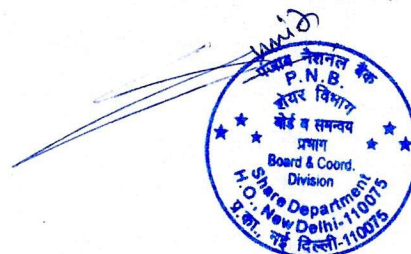 पंजाब नैशनल बैंक
P.N.B.
शेयर विभाग
बोर्ड व समन्वय
प्रभाग
Board & Coord.
Division
Share Department
H.O., New Delhi-110075
प्र.का., नई दिल्ली-110075